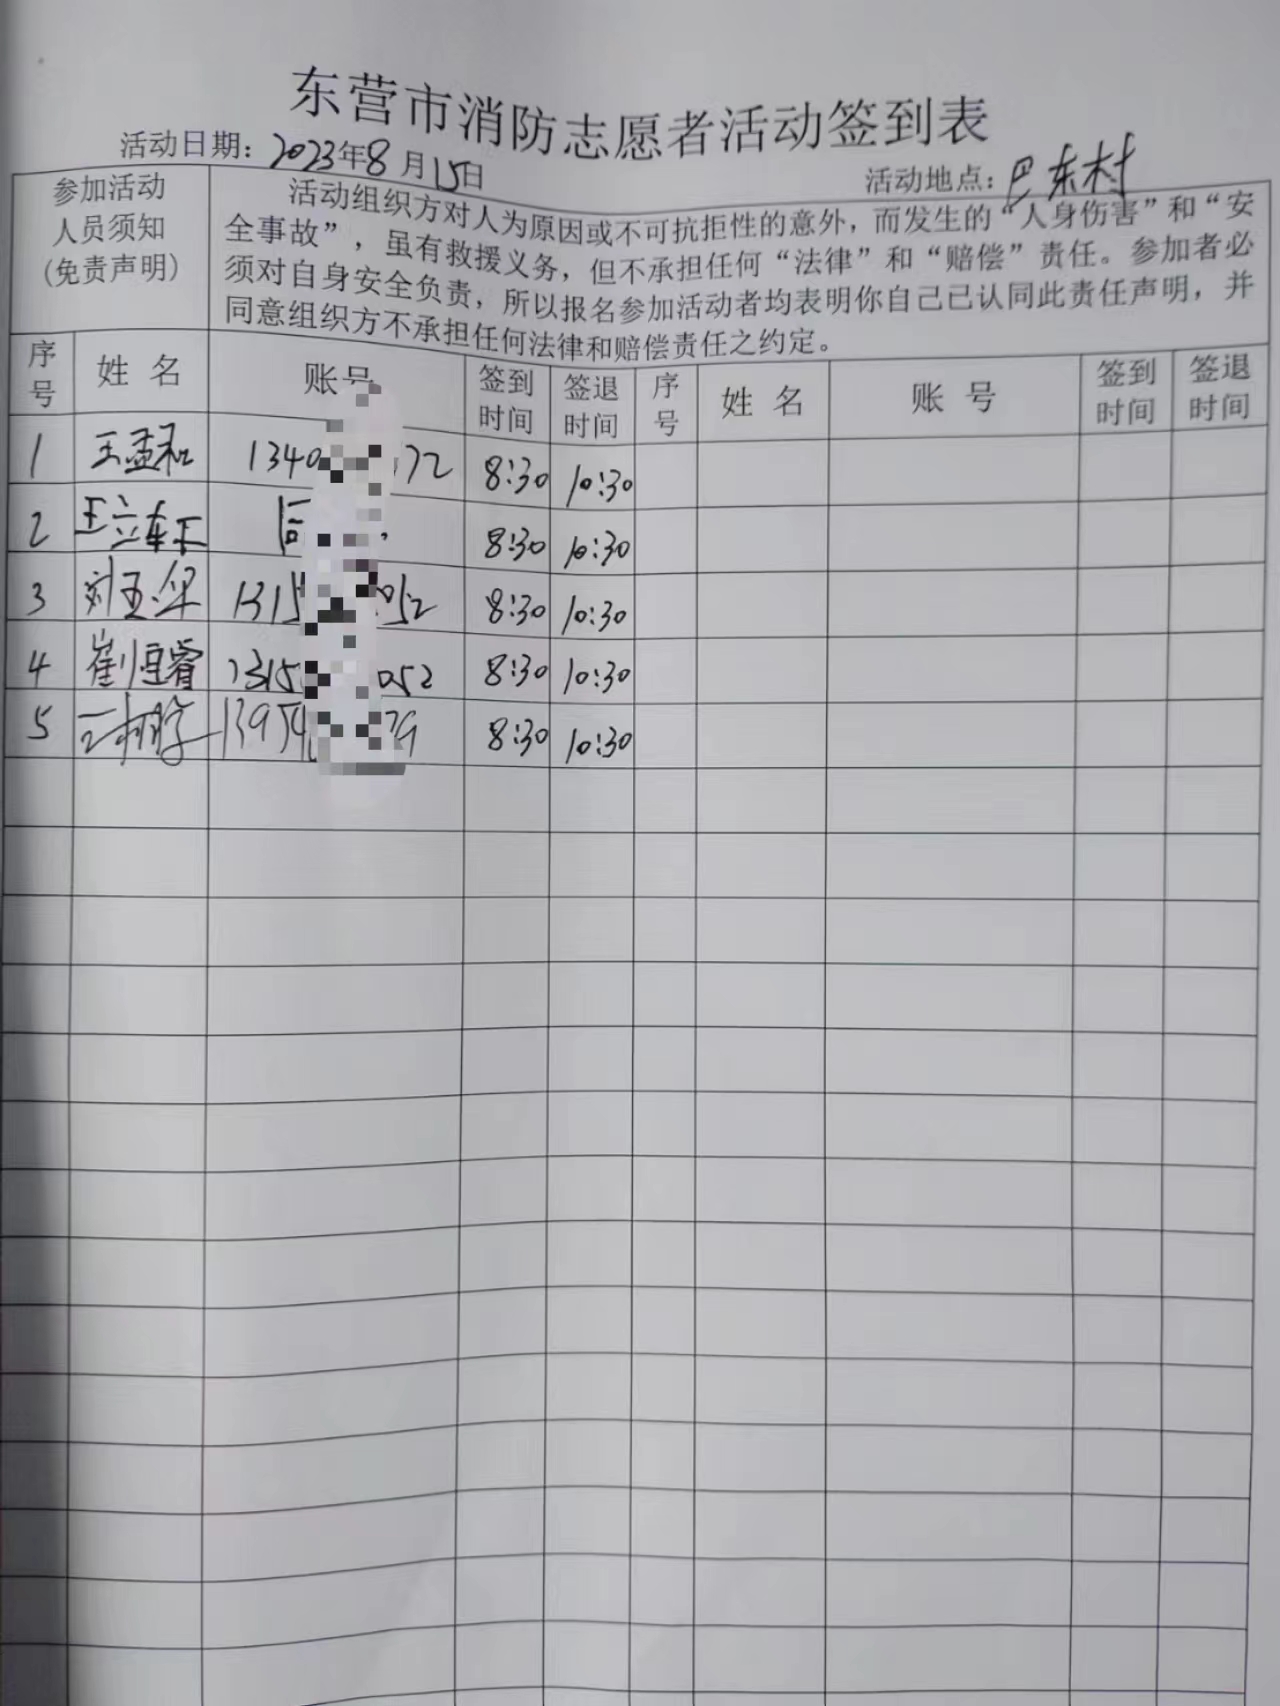 东营市消防志愿者活动签到表
活动日期：2023年8月15日 活动地点：巴东村
参加活动
人员须知
(免责声明)
活动组织方对人为原因或不可抗拒性的意外，而发生的“人身伤害”和“安
全事故”，虽有救援义务，但不承担任何“法律”和“赔偿”责任。参加者必
须对自身安全负责，所以报名参加活动者均表明你自己已认同此责任声明，并
同意组织方不承担任何法律和赔偿责任之约定。
序号 姓名 账号 签到时间 签退时间 序号 姓名 账号 签到时间 签退时间
1 王孟和 1340 172 8:30 10:30
2 同 8:30 10:30
3 刘 1315 052 8:30 10:30
4 崔恒睿 1315 052 8:30 10:30
5 1395 79 8:30 10:30